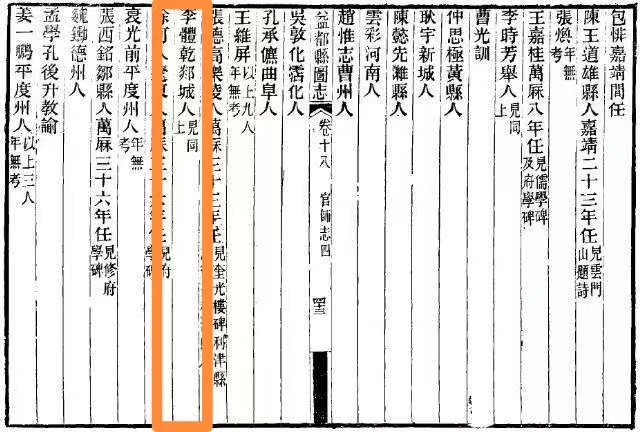 包悱嘉靖間任
陳王道雄縣人嘉靖二十三年任見雲門山題詩
張煥年無考
王嘉桂萬厤八年任見儒學碑及府學碑
李時芳舉人見同上
曹光訓
仲思極黃縣人
耿宇新城人
陳懿先濰縣人
雲彩河南人
趙惟志曹州人
益都縣圖志 卷十八 官師志四
吳敦化霑化人
孔承儦曲阜人
王維屏以上九人年無考
張德高樂陵人萬厤三十三年任見奎光樓碑利津縣
李體乾郯城人見同上
人萬厤三十六年任見府學碑
袁光前平度州人年無考
張西銘鄒縣人萬厤三十六年任見修府學碑
魏鋤德州人
孟學孔後升教諭
姜一鵬平度州人以上三人年無考